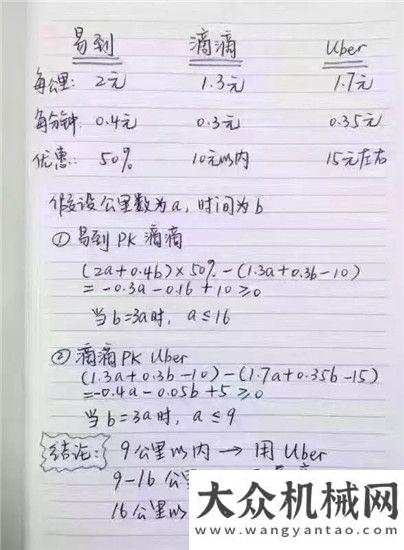 易到 滴滴 Uber
每公里: 2元 1.3元 1.7元
每分钟: 0.4元 0.3元 0.35元
优惠: 50% 10元以内 15元左右
假设公里数为a,时间为b
① 易到 PK 滴滴
(2a+0.4b)×50%-(1.3a+0.3b-10)
=-0.3a-0.1b+10≥0
当b=3a时, a≤16
② 滴滴PK Uber
(1.3a+0.3b-10)-(1.7a+0.35b-15)
=-0.4a-0.05b+5≥0
当b=3a时, a≤9
结论: 9公里以内→用Uber
9-16公
16公里以
大众机械网
www.wangyantao.com